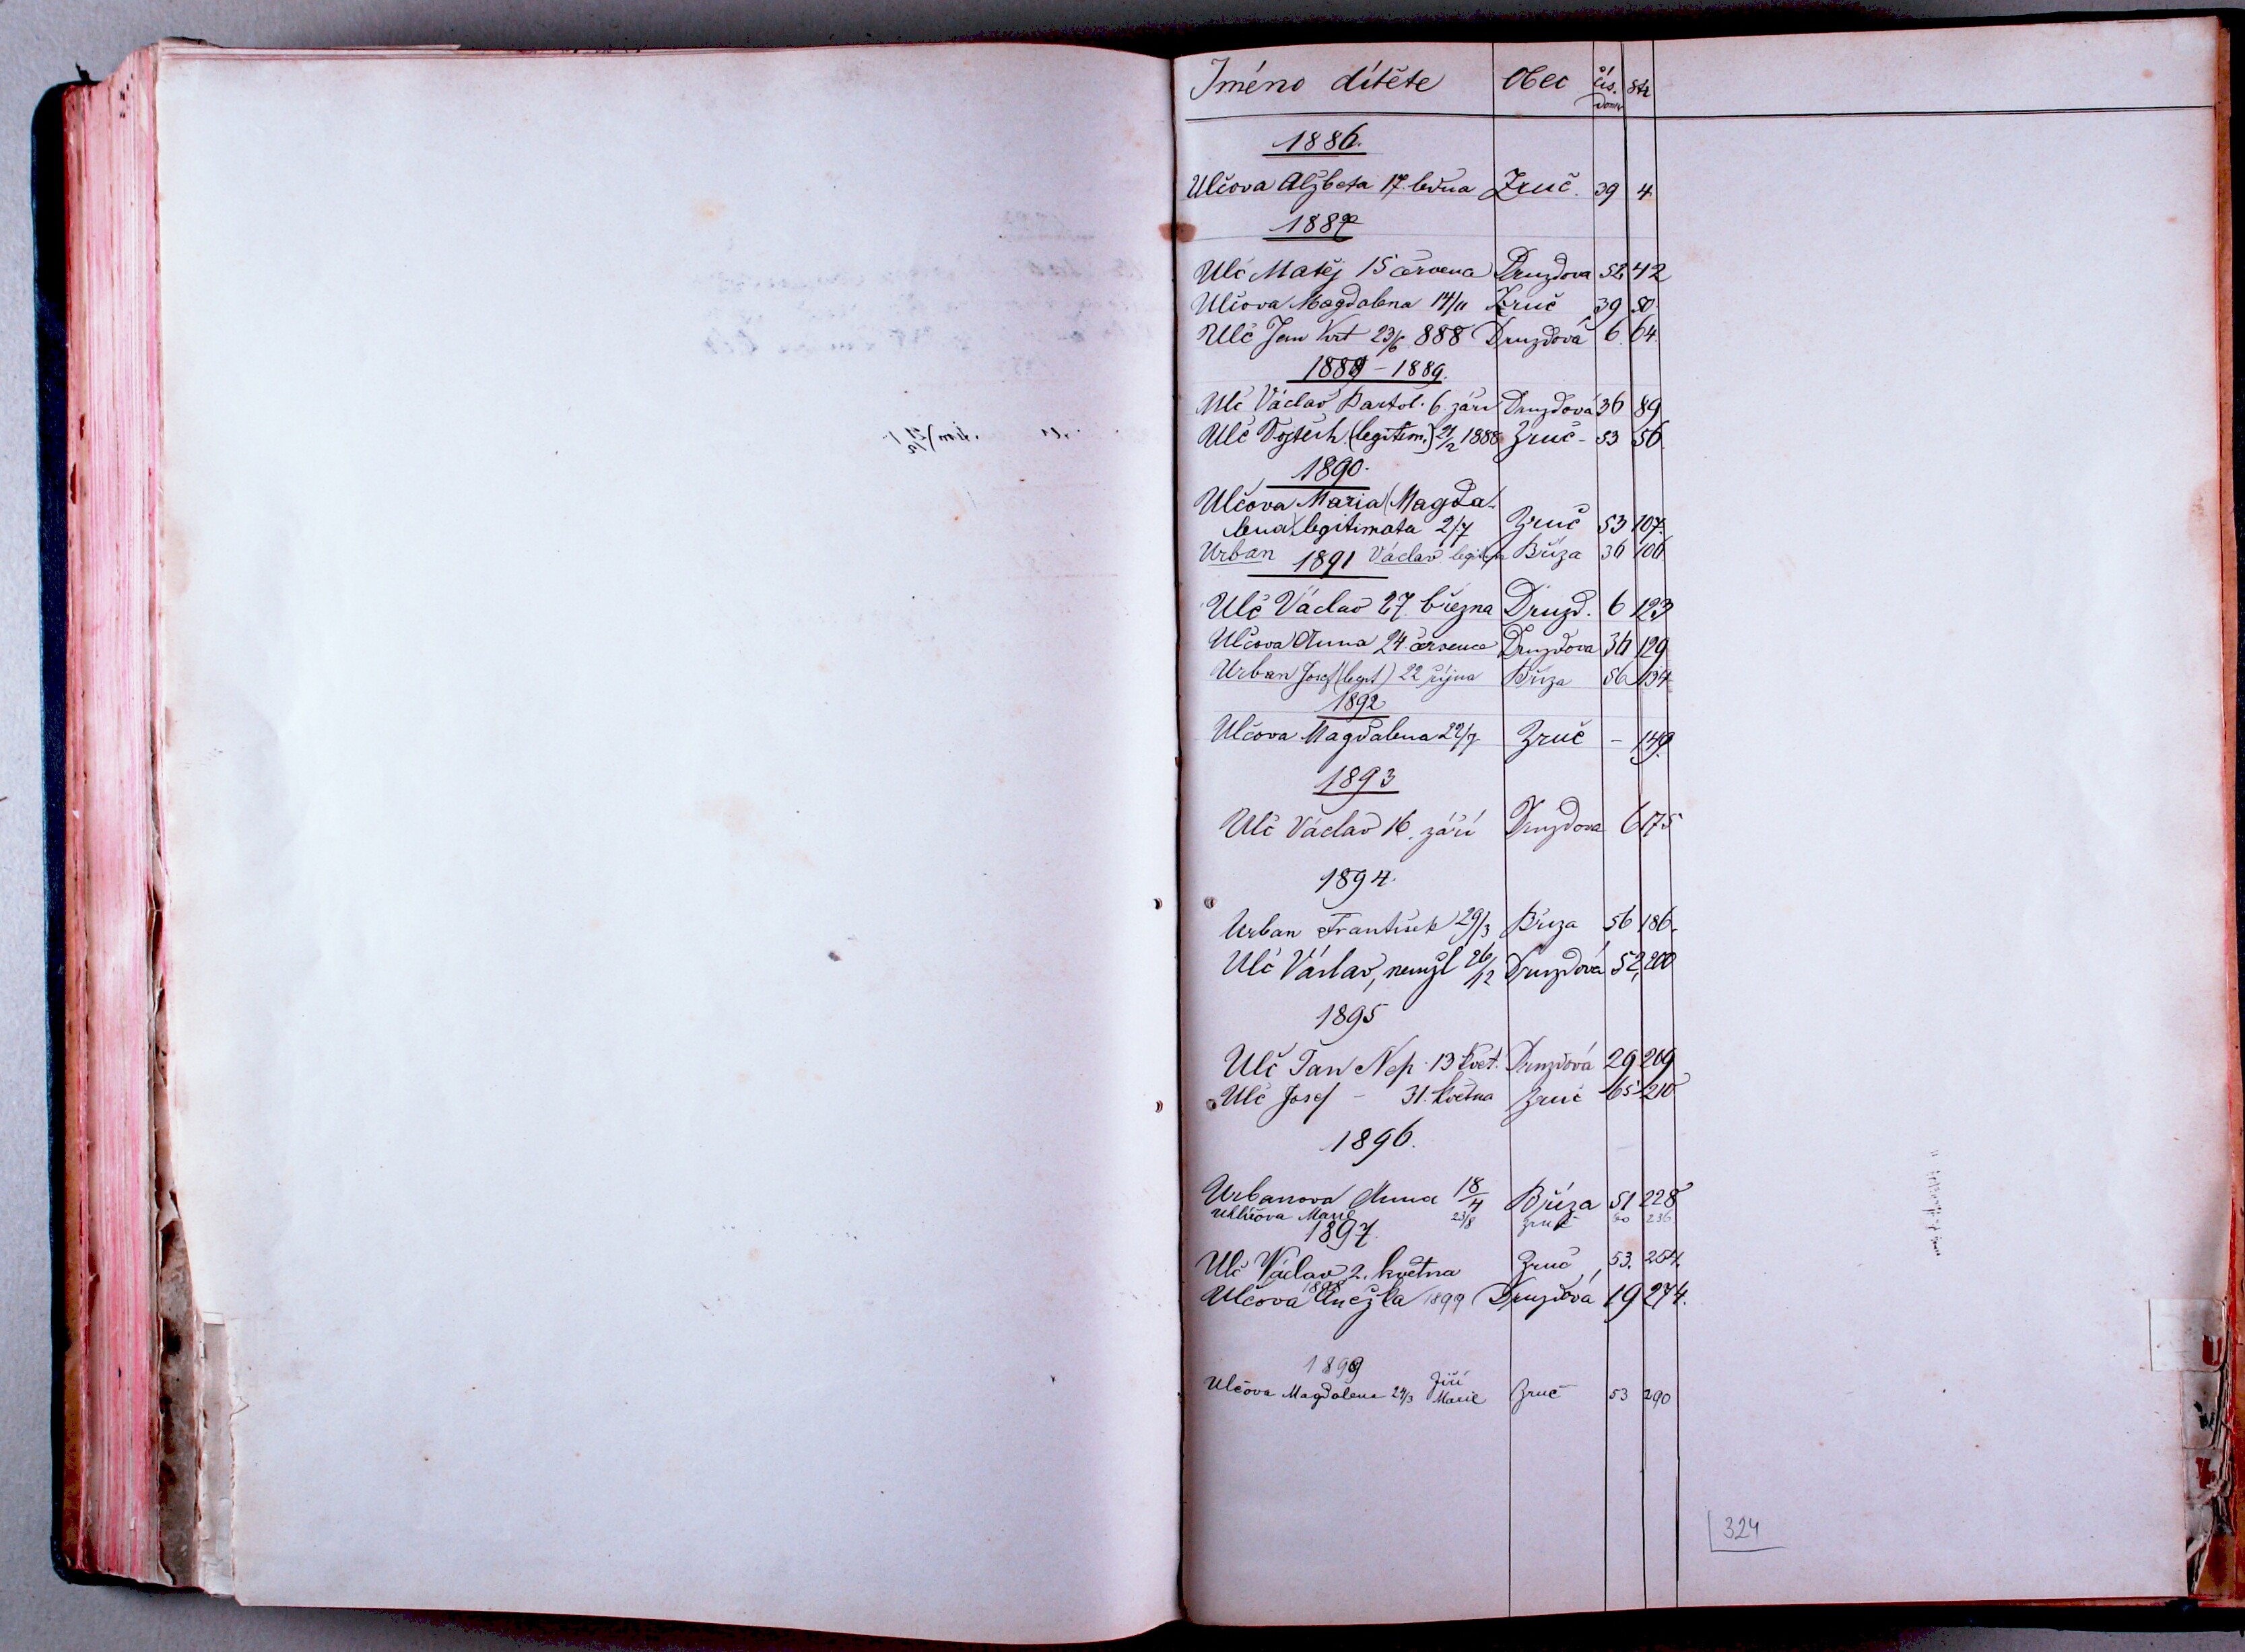 Jméno dítěte Obec čís. domu Str
1886.
Ulčova Alžbeta 17. ledna Zruč. 39 4
1887
Ulč Matěj 15 června Druzdova 52 42
Ulčova Magdalena 14/11 Zruč 39 50
Ulč Jan Krt 23/6 888 Druzdová 6. 64.
1888 - 1889.
Ulč Václav Bartol. 6. září Druzdová 36 89
Ulč Vojtěch (legitim.) 21/2 1888 Zruč - 53 56.
1890.
Ulčova Maria (Magda-
lena) legitimata 2/7 Zruč 53 107.
Urban Václav Bříza 36 106
1891
Ulč Václav 27. března Druzd. 6 123
Ulčova Anna 24. července Druzdova 36 129
Urban Josef (legit) 22 října Bříza 56 134
1892
Ulčova Magdalena 22/7 Zruč - 149.
1893
Ulč Václav 16. září Druzdova 6 175
1894.
Urban František 29/3 Bříza 56 186.
Ulč Václav, nemžl 26/12 Druzdová 52, 200
1895
Ulč Jan Nep. 13 květ. Druzdová 29 209
Ulč Josef - 31. května Zruč 65 210
1896.
Urbanova Anna 18/4 Bříza 51 228
Uhlířova Marie 23/8 Zruč 236
1897.
Ulč Václav 2. května Zruč 53. 254.
1898
Ulčova Anežka 1899 Druzdová 19 274.
1899
Jiří
Ulčova Magdalena 24/3 Marie Zruč 53 290
324
U